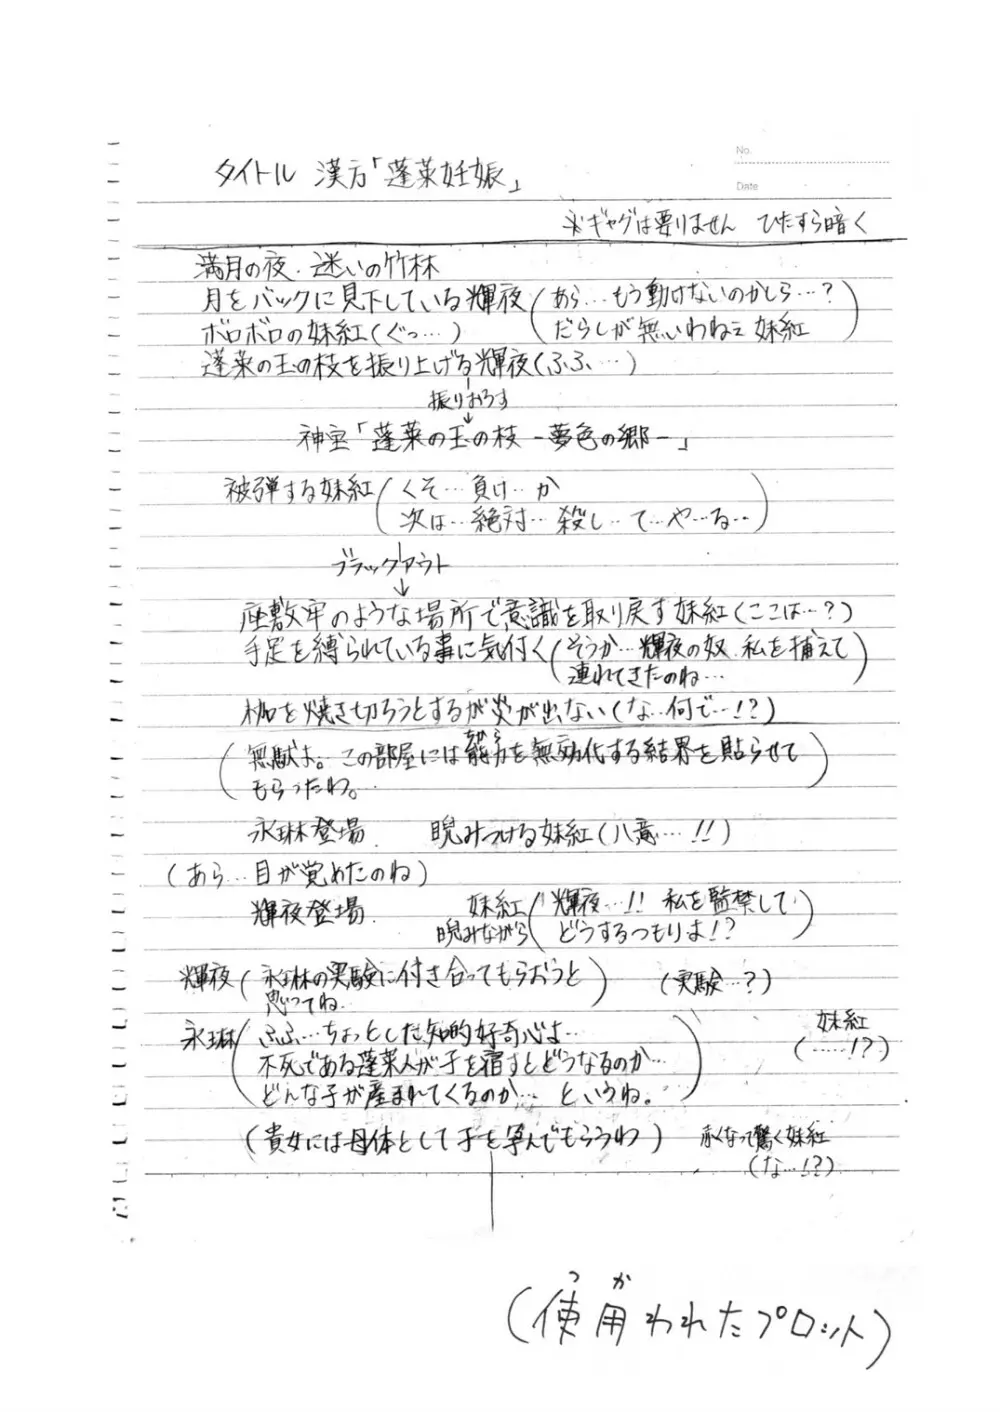 No.
タイトル 漢方「蓬莱妊娠」
Date
※ギャグは要りません ひたすら暗く
満月の夜、迷いの竹林
月をバックに見下している輝夜(あら…もう動けないのかしら…?
だらしが無いわねェ妹紅)
ボロボロの妹紅(ぐっ…)
蓬莱の玉の枝を振り上げる輝夜(ふふ…)
振りおろす
神宝「蓬莱の玉の枝 -夢色の郷-」
被弾する妹紅(くそ…負け…か
次は…絶対…殺し…て…や…る…)
ブラックアウト
座敷牢のような場所で意識を取り戻す妹紅(ここは…?)
手足を縛られている事に気付く(そうか…輝夜の奴、私を捕えて
連れてきたのね…)
枷を焼き切ろうとするが炎が出ない(な…何で…!?)
(無駄よ。この部屋には能力を無効化する結界を貼らせて
もらったわ。)
永琳登場 睨みつける妹紅(八意…!!)
(あら…目が覚めたのね)
輝夜登場 妹紅(輝夜…!! 私を監禁して
睨みながら どうするつもりよ!?)
輝夜(永琳の実験に付き合ってもらおうと
思ってね) (実験…?)
永琳(ふふ…ちょっとした知的好奇心よ…
妹紅
不死である蓬莱人が子を宿すとどうなるのか… (……!?)
どんな子が産まれてくるのか… というね。)
(貴女には母体として子を孕んでもらうわ) 赤くなって驚く妹紅
(な…!?)
つか
(使用われたプロット)